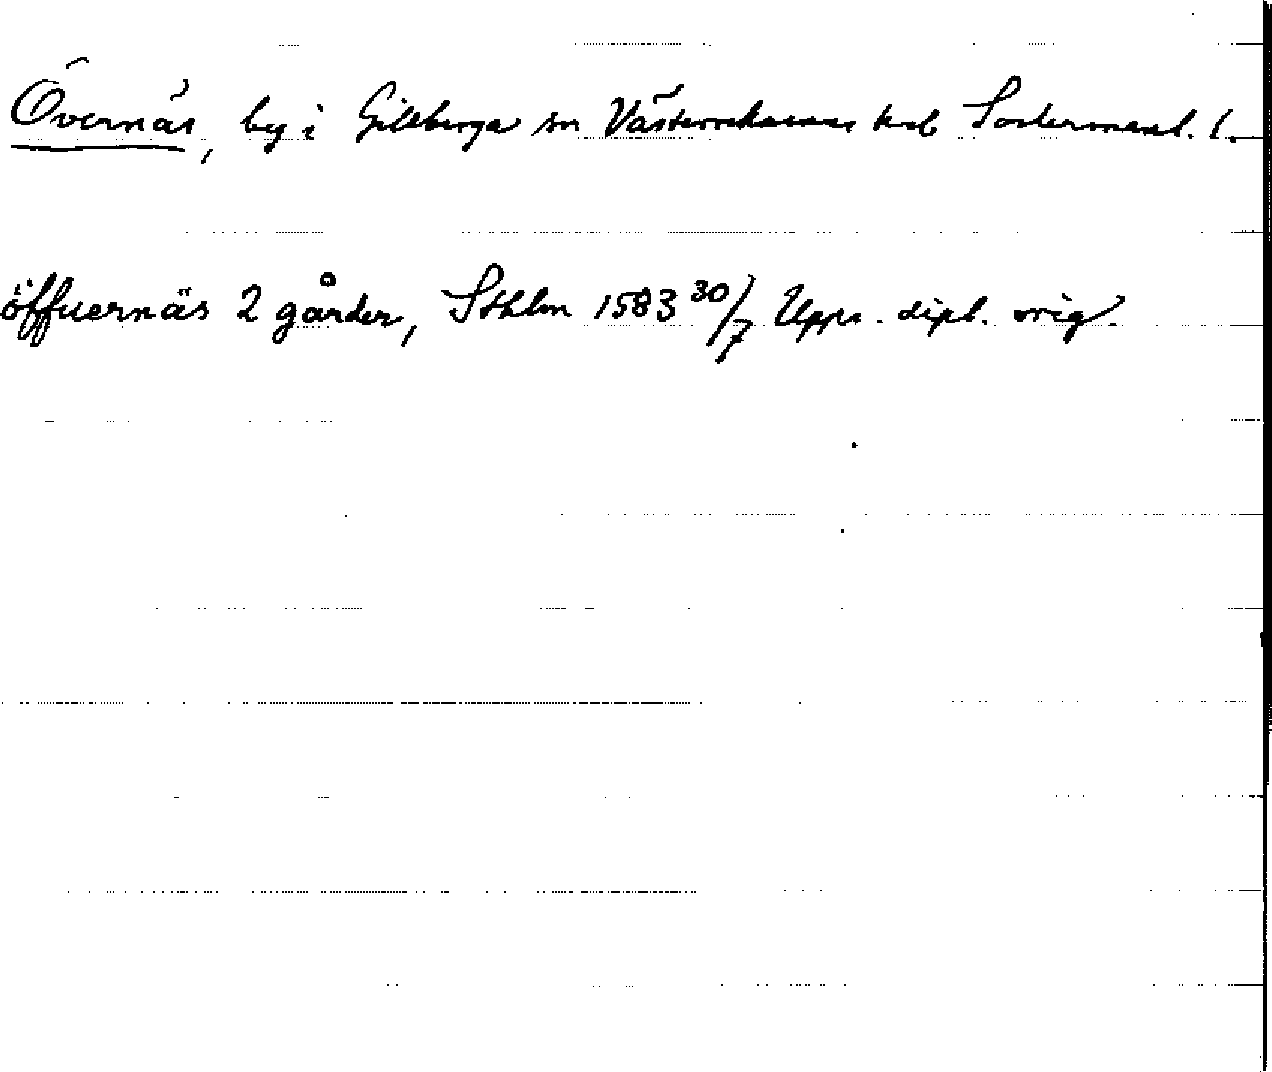 Övernäs, by i Gillberga sn Västerrekarne hd Södermanl. l.
öffuernäs 2 gårder, Sthlm 1583 30/7 Upps. dipl. orig.